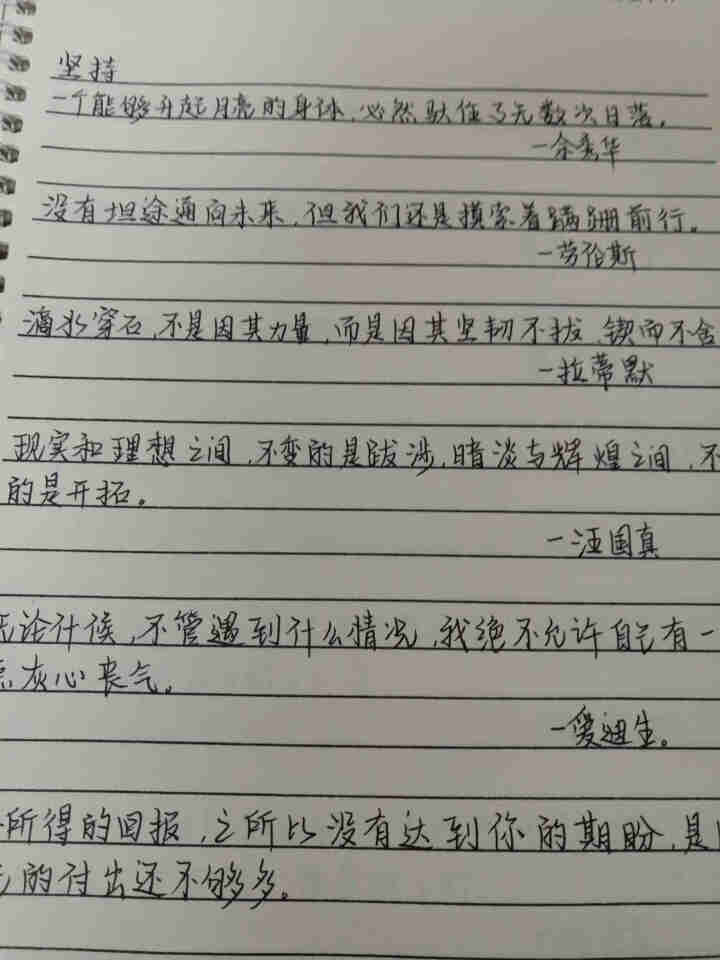 坚持
一个能够升起月亮的身体，必然驮住了无数次日落。
—余秀华
没有坦途通向未来，但我们还是摸索着蹒跚前行。
—劳伦斯
滴水穿石，不是因其力量，而是因其坚韧不拔、锲而不舍
—拉蒂默
现实和理想之间，不变的是跋涉，暗淡与辉煌之间，不
的是开拓。
—汪国真
无论什候，不管遇到什么情况，我绝不允许自己有一
灰心丧气。
—爱迪生。
所得的回报，之所以没有达到你的期盼，是
的付出还不够多。